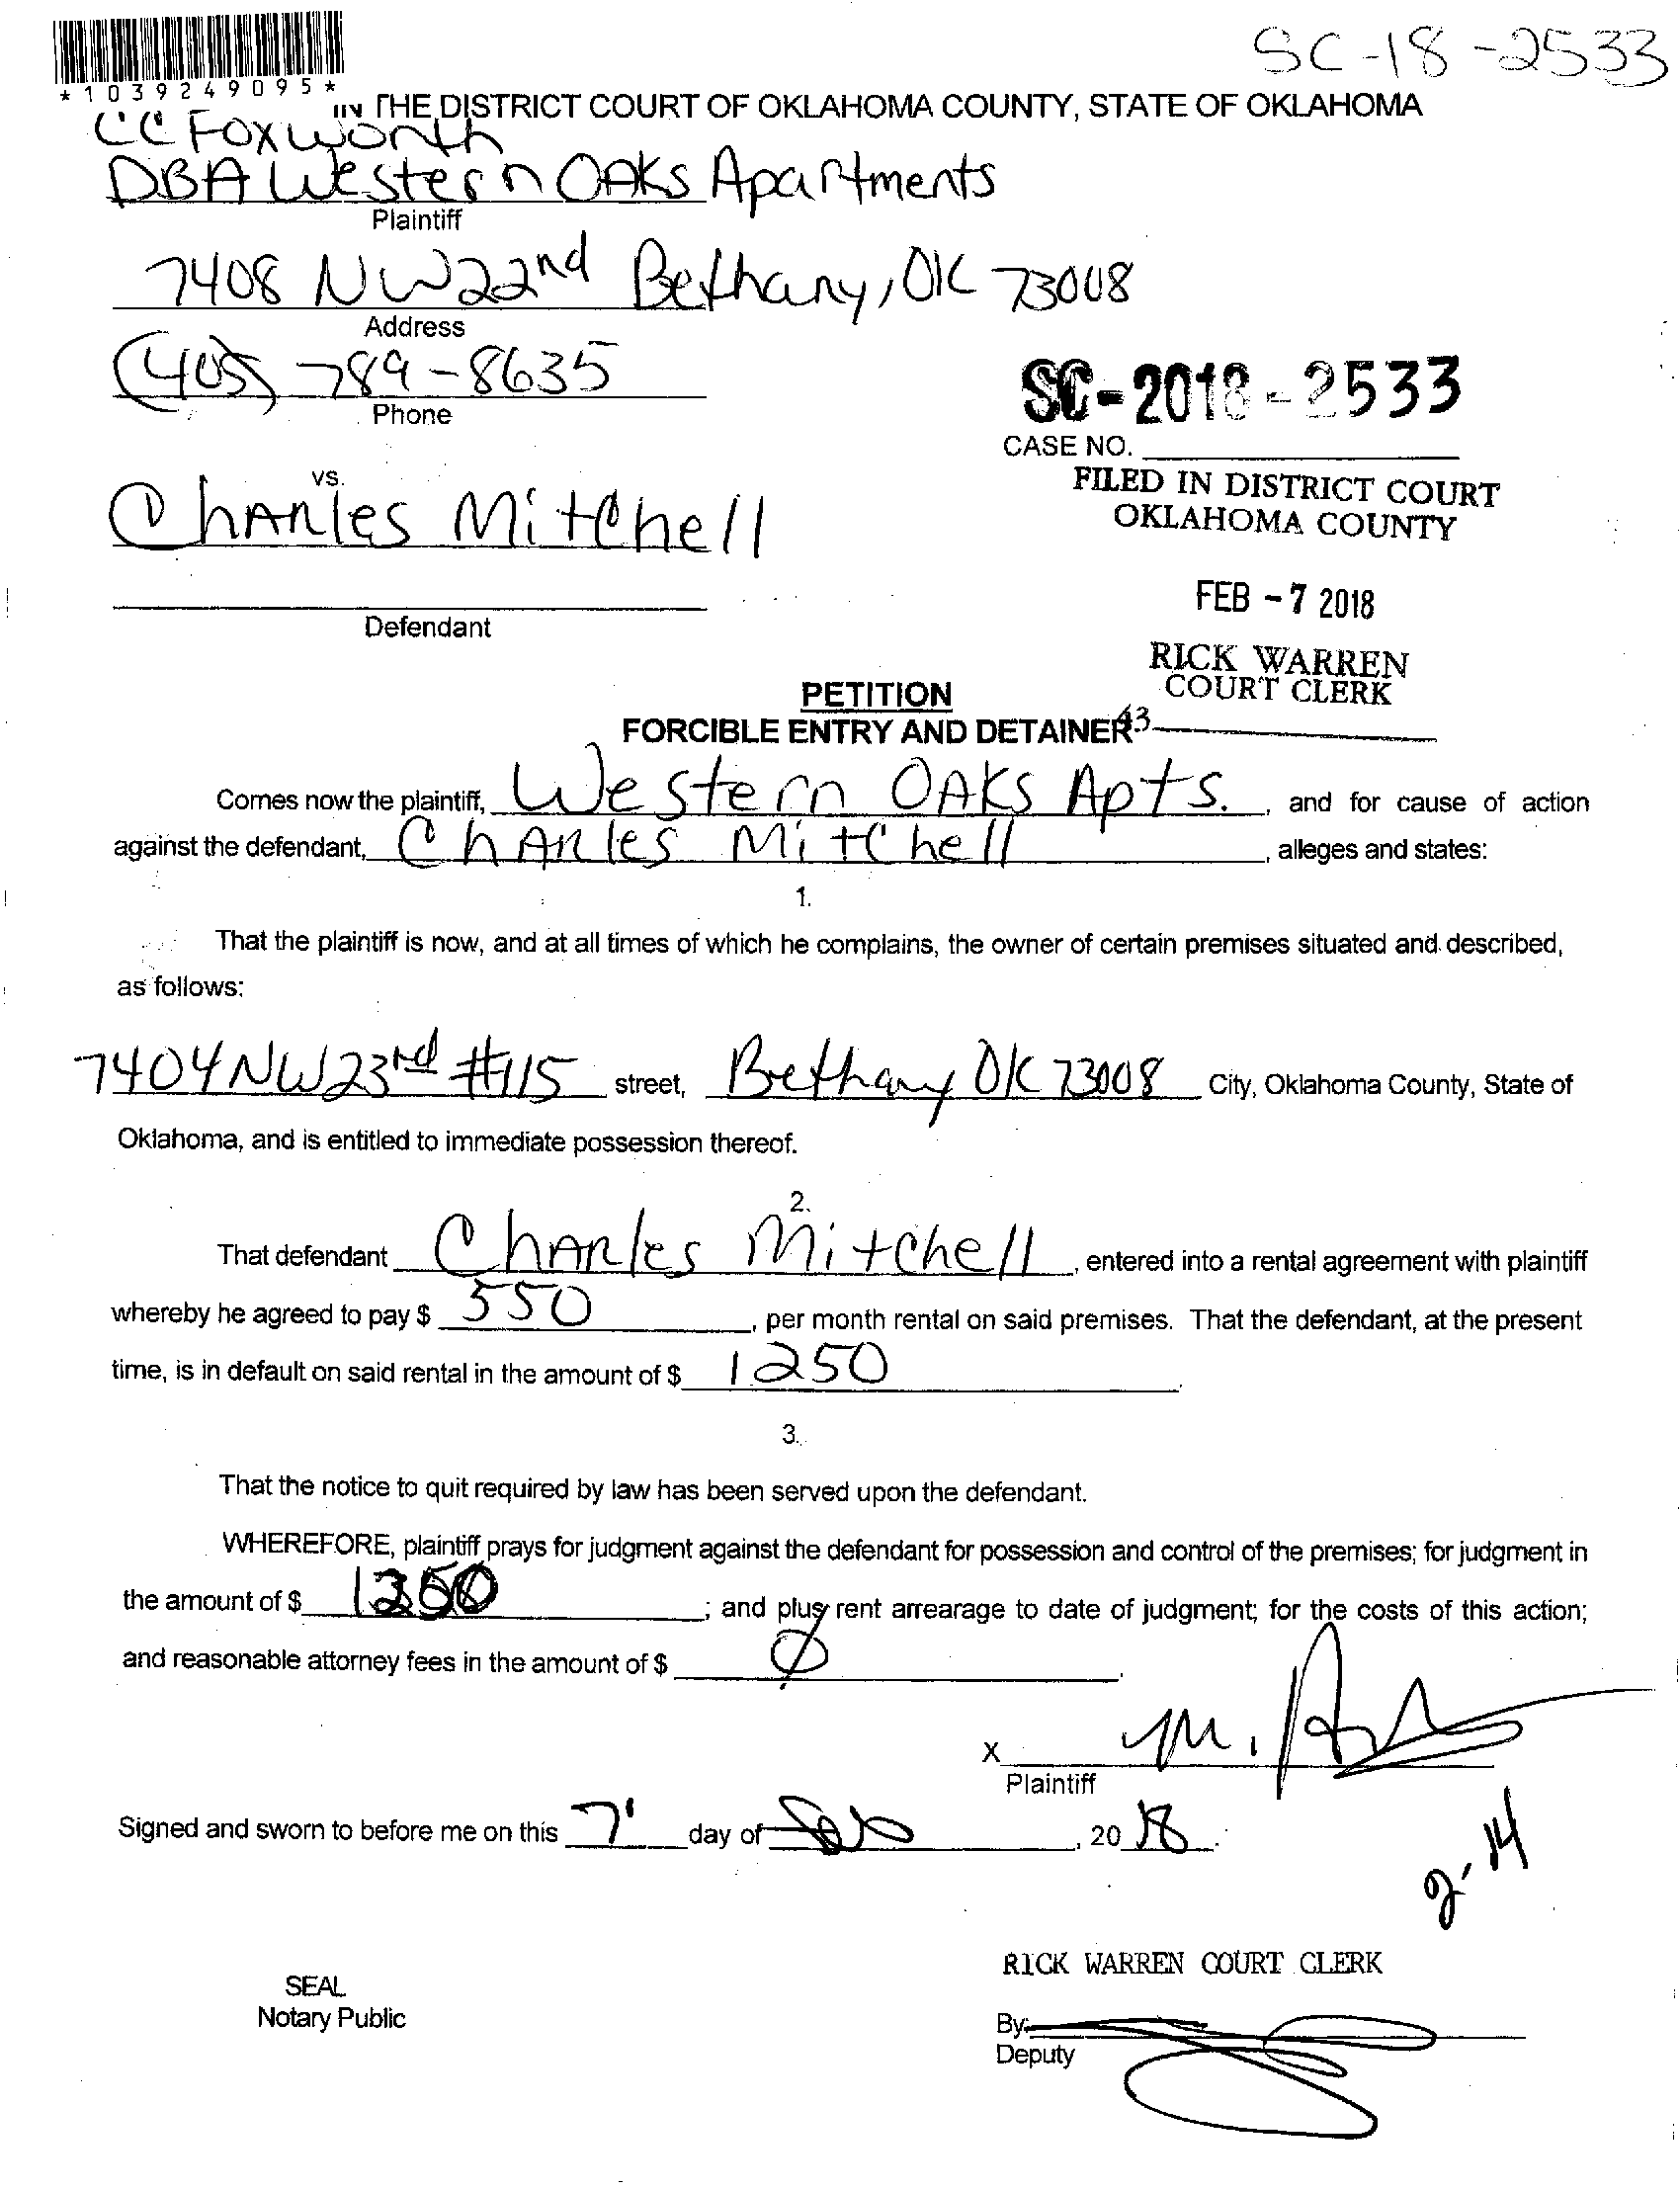 SC-18-2533
*1039249095*
IN THE DISTRICT COURT OF OKLAHOMA COUNTY, STATE OF OKLAHOMA
CC Foxworth
DBA Western OAKs Apartments
Plaintiff
7408 NW 22nd Bethany, OK 73008
Address
(405) 789-8635
Phone
SC-2018-2533
CASE NO.
vs.
FILED IN DISTRICT COURT
OKLAHOMA COUNTY
Charles Mitchell
FEB - 7 2018
Defendant
RICK WARREN
COURT CLERK
PETITION
FORCIBLE ENTRY AND DETAINER
43
Comes now the plaintiff, Western OAKs Apts. , and for cause of action
against the defendant, Charles Mitchell , alleges and states:
1.
That the plaintiff is now, and at all times of which he complains, the owner of certain premises situated and described,
as follows:
7404 NW 23rd #115 street, Bethany OK 73008 City, Oklahoma County, State of
Oklahoma, and is entitled to immediate possession thereof.
2.
That defendant Charles Mitchell , entered into a rental agreement with plaintiff
whereby he agreed to pay $ 550 , per month rental on said premises. That the defendant, at the present
time, is in default on said rental in the amount of $ 1250 .
3.
That the notice to quit required by law has been served upon the defendant.
WHEREFORE, plaintiff prays for judgment against the defendant for possession and control of the premises; for judgment in
the amount of $ 1250 ; and plus rent arrearage to date of judgment; for the costs of this action;
and reasonable attorney fees in the amount of $ Ø .
X
Plaintiff
Signed and sworn to before me on this 7 day of Feb , 20 18 .
2-14
RICK WARREN COURT CLERK
SEAL
Notary Public
By:
Deputy